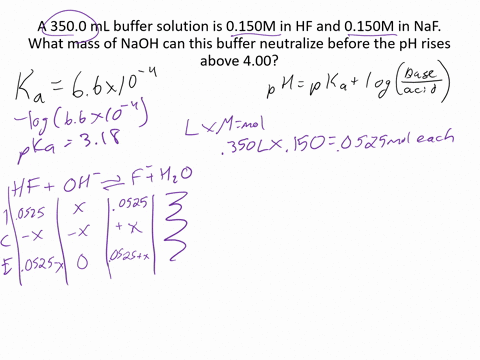 A 350.0 mL buffer solution is 0.150M in HF and 0.150M in NaF.
What mass of NaOH can this buffer neutralize before the pH rises
above 4.00?
Ka = 6.6x10⁻⁴
pH = pKa + log(Base/acid)
-log(6.6x10⁻⁴)
pKa = 3.18
L x M = mol
.350L x .150 = .0525 mol each
HF + OH⁻ ⇌ F⁻ + H₂O
I .0525 x .0525
C -x -x +x
E .0525-x 0 .0525+x